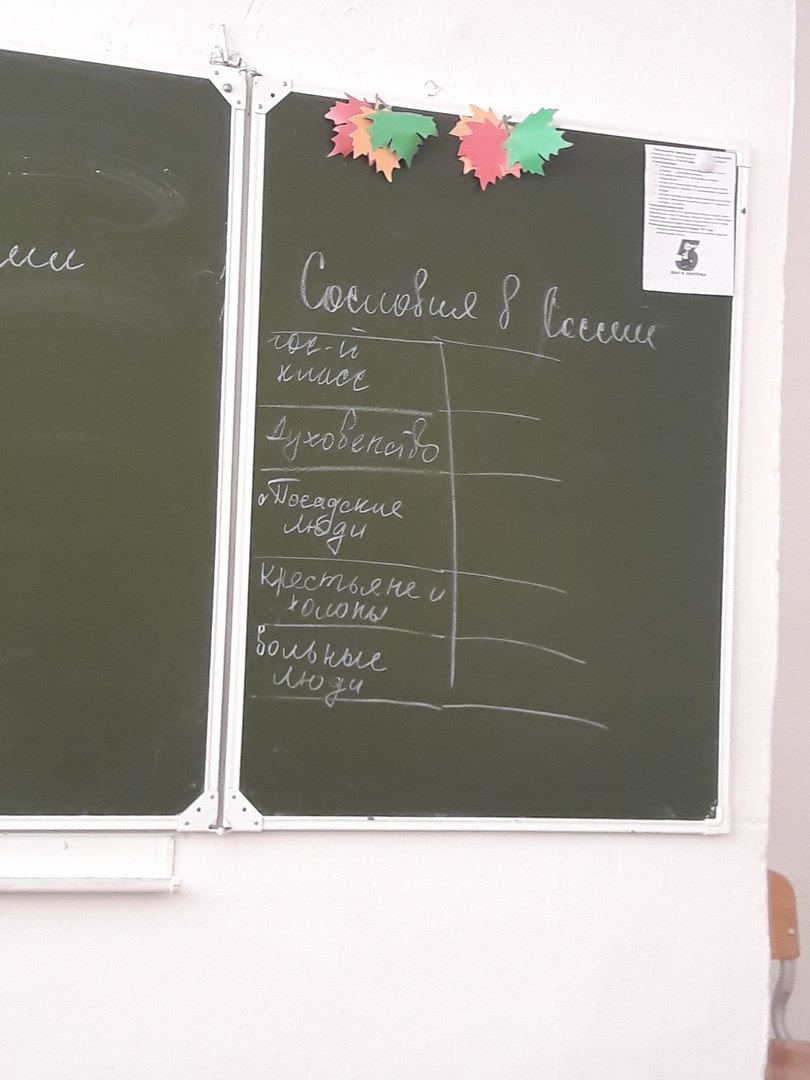 Сословия в России
гос-й
класс
Духовенство
Посадские
люди
Крестьяне и
холопы
Вольные
люди
5